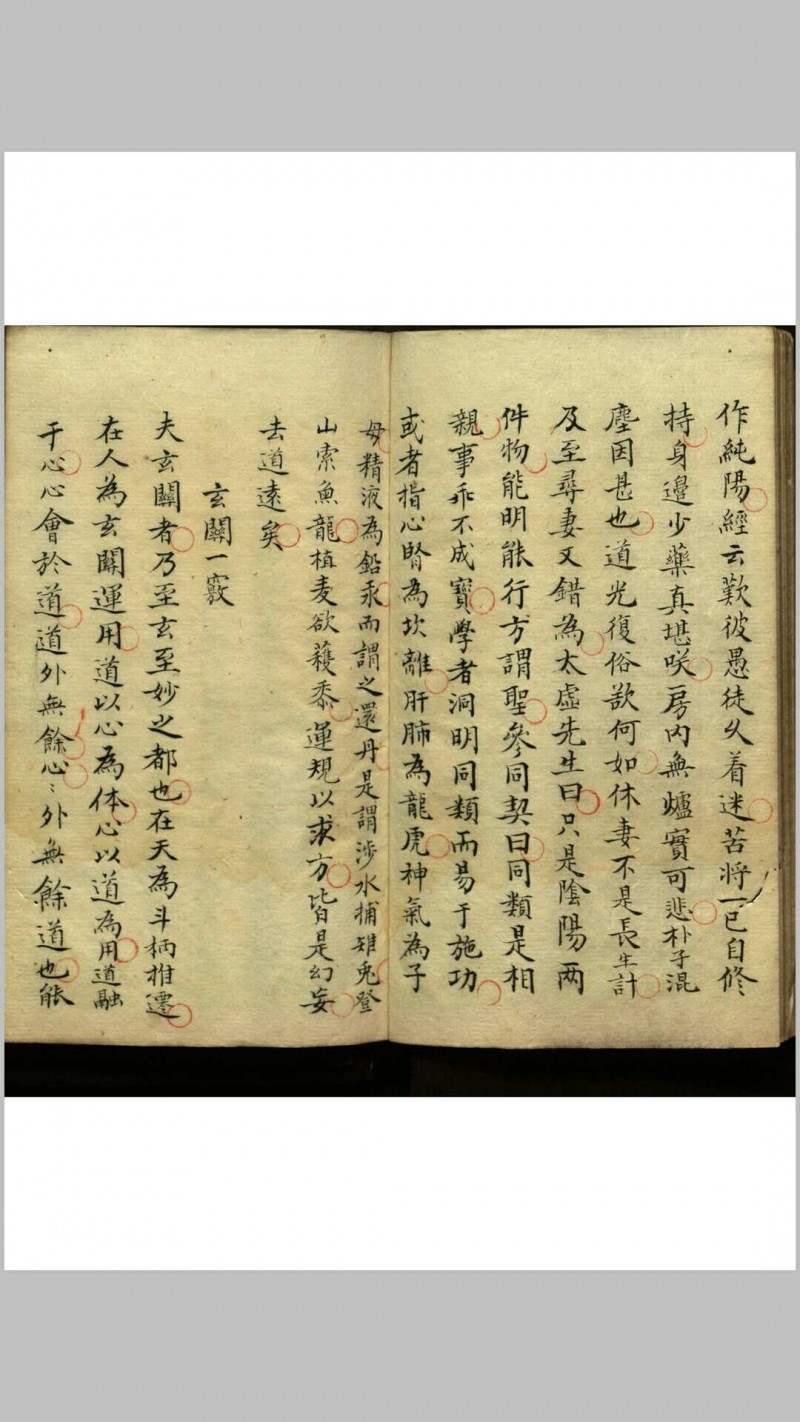 作純陽經云歎彼愚徒久着迷苦將一己自修
持身邊少藥真堪咲房内無爐實可悲朴子混
塵因甚也道光復俗欲何如休妻不是長生計
及至尋妻又錯為太虛先生曰只是陰陽两
件物能明能行方謂聖參同契曰同類是相
親事乖不成寶學者洞明同類而易于施功
或者指心腎為坎離肝肺為龍虎神氣為子
母精液為鉛汞而謂之還丹是謂涉水捕雉兎登
山索魚龍植麦欲蕿黍運規以求方皆是幻妄
去道遠矣
玄関一竅
夫玄關者乃至玄至妙之都也在天為斗柄推遷
在人為玄関運用道以心為体心以道為用道融
于心心會於道道外無餘心〻外無餘道也能